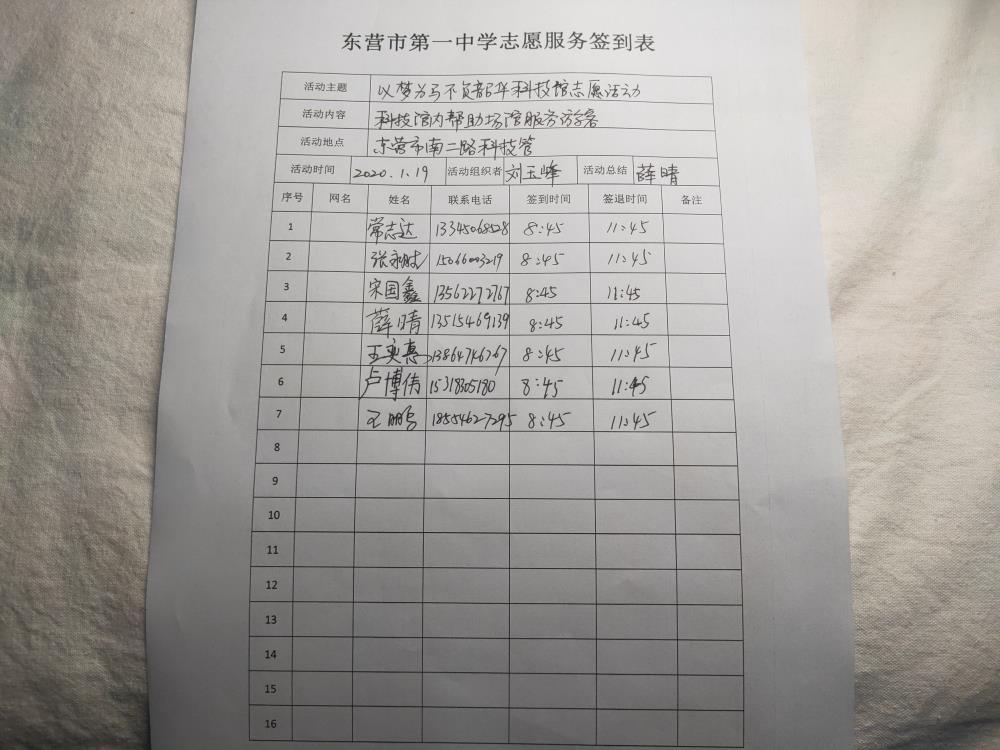 东营市第一中学志愿服务签到表
活动主题 以梦为马不负韶华科技馆志愿活动
活动内容 科技馆内帮助场馆服务游客
活动地点 东营市南二路科技管
活动时间 2020.1.19 活动组织者 刘玉峰 活动总结 薛晴
序号 网名 姓名 联系电话 签到时间 签退时间 备注
1 常志达 13345068528 8:45 11:45
2 张 15066003219 8:45 11:45
3 宋国鑫 13562272767 8:45 11:45
4 薛晴 13515469139 8:45 11:45
5 王奕惠 13864746767 8:45 11:45
6 卢博伟 15318305180 8:45 11:45
7 王鹏 18554627295 8:45 11:45
8
9
10
11
12
13
14
15
16